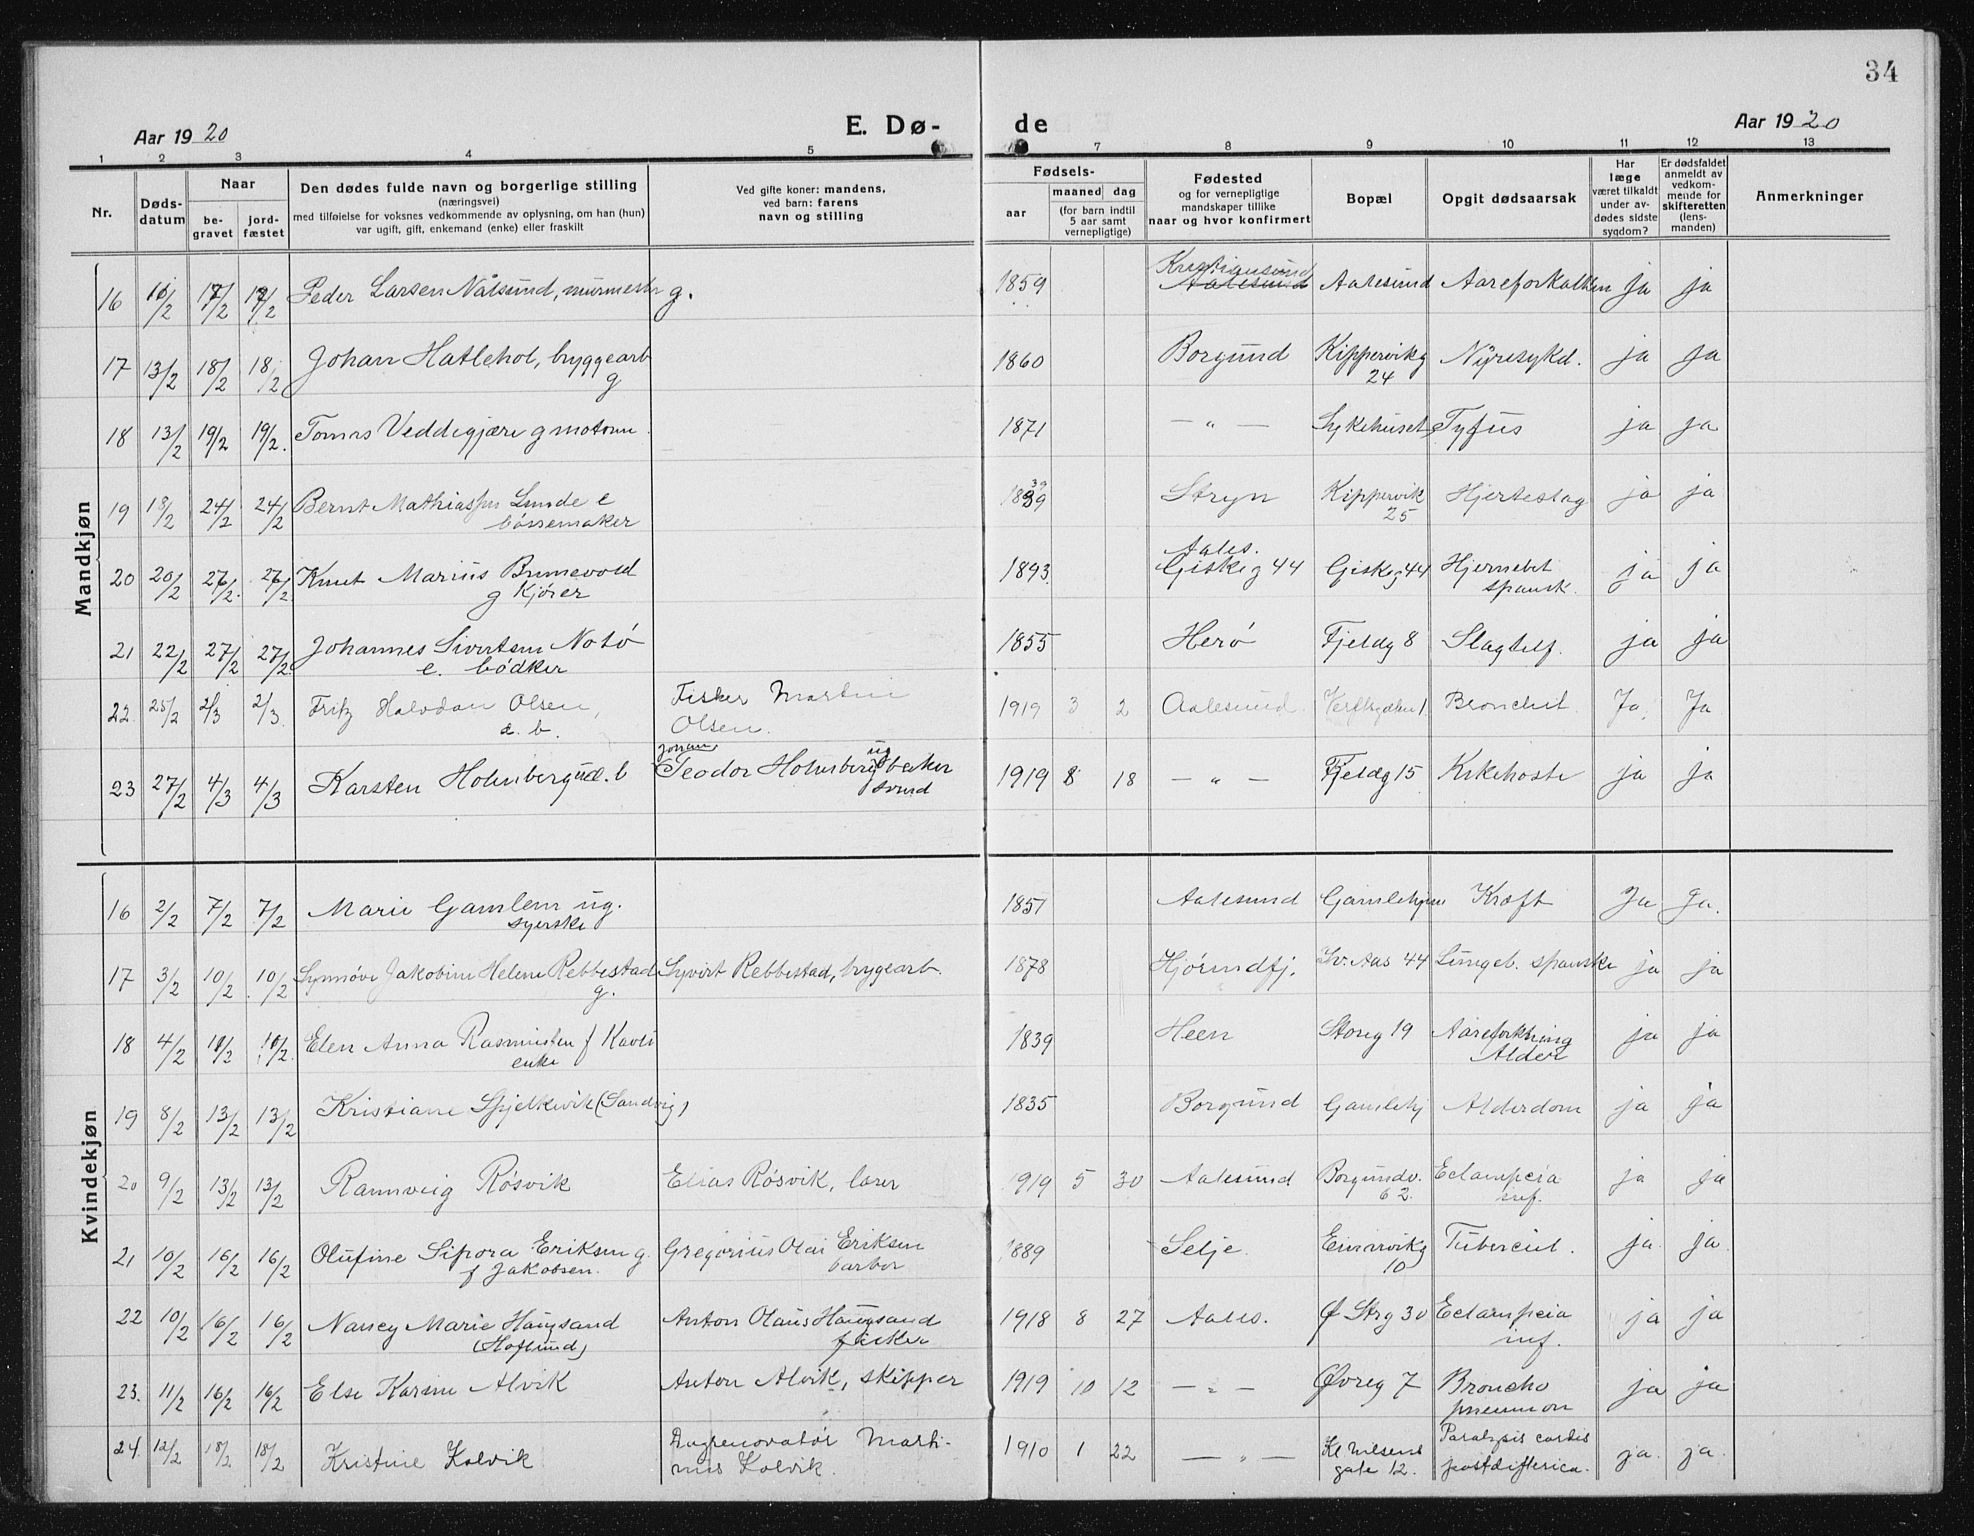 34
Aar 1920
E. Dø-
de
Aar 1920
1 2 3 4 5 7 8 9 10 11 12 13
Nr.
Døds-
datum
Naar
be-
gravet
jord-
fæstet
Den dødes fulde navn og borgerlige stilling
(næringsvei)
med tilføielse for voksnes vedkommende av oplysning, om han (hun)
var ugift, gift, enkemand (enke) eller fraskilt
Ved gifte koner: mandens,
ved barn: farens
navn og stilling
Fødsels-
aar
maaned dag
(for barn indtil
5 aar samt
vernepligtige)
Fødested
og for vernepligtige
mandskaper tillike
naar og hvor konfirmert
Bopæl
Opgit dødsaarsak
Har
læge
været tilkaldt
under av-
dødes sidste
sygdom?
Er dødsfaldet
anmeldt av
vedkom-
mende for
skifteretten
(lens-
manden)
Anmerkninger
Mandkjøn
Kristiansund
16 16/2 17/2 17/2 Peder Larsen Nålsund, murmester g. 1859 Aalesund Aalesund Aareforkalken ja ja
17 13/2 18/2 18/2 Johan Hatlehol, bryggearb 1860 Borgund Kippervikg Nyresykd. ja ja
g 24
18 13/2 19/2 19/2. Tomas Veddegjære g motorm 1871 — " — Sykehuset Tyfus ja ja
39
19 18/2 24/2 24/2 Bernt Mathiassen Lunde e 1839 Stryn Kippervik Hjerteslag ja ja
bössemaker 25
Aales.
20 20/2 26/2. 26/2. Knut Marius Brunevold 1893. Giskeg 44 Giskeg 44 Hjernebet ja ja
g kjører spansk.
21 22/2 27/2 27/2. Johannes Sivertsen Notø 1855 Herø Fjeldg 8 Slagtilf. ja ja
e. bødker
22 25/2 2/3 2/3. Fritz Halvdan Olsen, Fisker Martin 1919 3 2 Aalesund. Bronchit. Ja. Ja
e. b. Olsen.
Johan ug
23 27/2 4/3 4/3 Karsten Holmberg u.e. b Teodor Holmberg baker 1919 8 18 — " — Fjeldg 15 Kikehoste ja ja
svend
Kvindekjøn
16 2/2 7/2 7/2 Marie Gamlem ug. 1851 Aalesund Kræft Ja Ja.
syerske
17 3/2 10/2 10/2 Synnøve Jakobine Helene Rebbestad Syvert Rebbestad, brygearb. 1878 Hjørundfj. Sv. Aas 44 Lungeb. spanske ja ja
g.
18 4/2 10/2 10/2. Elen Anna Rasmussen f Kavli 1839 Heen Storg 19 Aareforkkning ja ja
enke Alder
19 8/2 13/2 13/2 Kristiane Spjelkevik (Sandvig) 1835 Borgund Gamlehj Alderdom ja ja
20 9/2 13/2 13/2 Rannveig Røsvik Elias Røsvik, lærer 1919 5 30 Aalesund Borgundv. Eclampcia ja ja
62. inf.
21 10/2 16/2 16/2 Olufine Sipora Eriksen g. Gregorius Olai Eriksen 1889 Selje. Einarvikg Tubercul. ja. ja.
f Jakobsen. barber 10
22 10/2 16/2 16/2 Nancy Marie Haugsand Anton Olaus Haugsand 1918 8 27 Aales. Ø Strg 30 Eclampcia ja ja
(Hoflund) fisker inf.
23. 11/2 16/2 16/2 Else Karine Alvik Anton Alvik, skipper 1919 10 12 — " — Øvreg 7 Broncho ja ja
pneumon
24. 12/2 18/2 18/2 Kristine Kolvik Dagrenovatör Marti- 1910 1 22 — " — Kl Nilsens Paralysis cordis ja. ja.
nus Kolvik. gate 12. postdifterica.